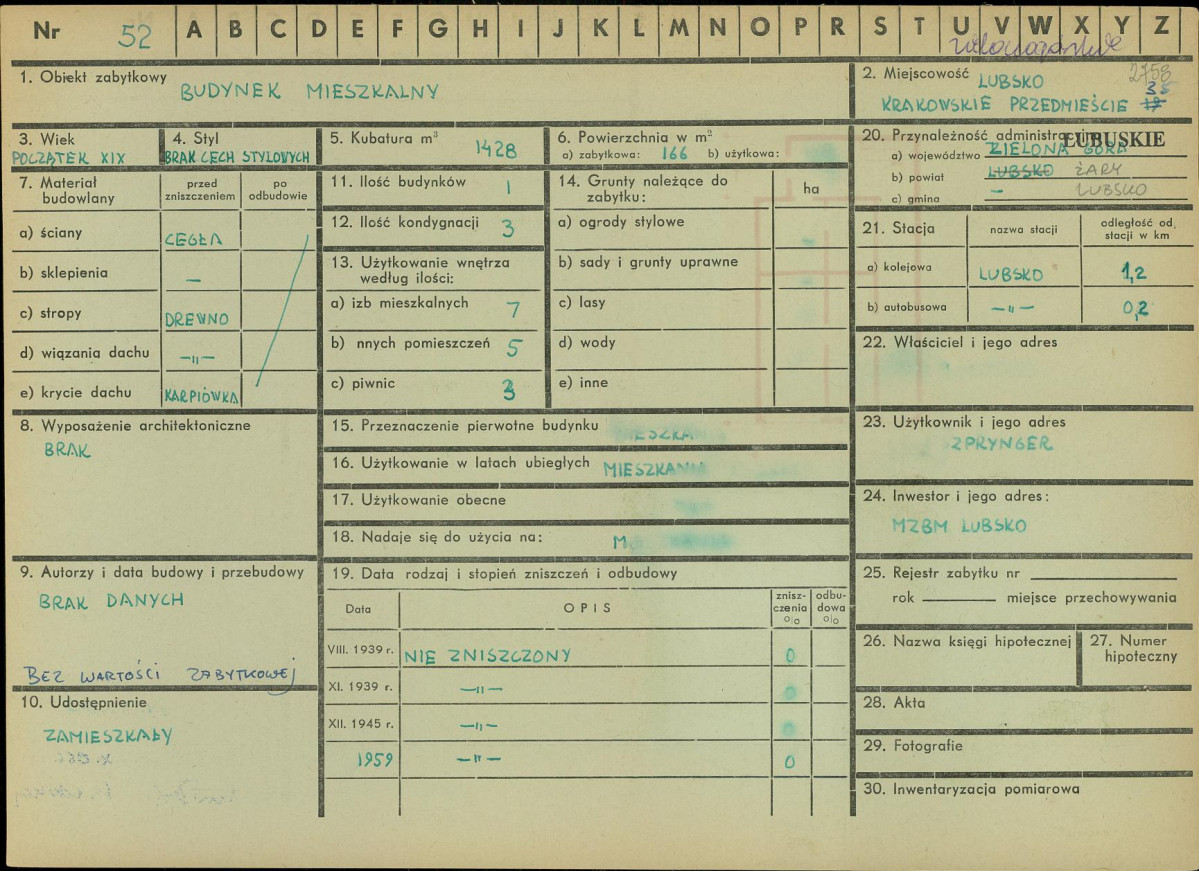 Nr 52 A B C D E F G H I J K L M N O P R S T U V W X Y Z
1. Obiekt zabytkowy
BUDYNEK MIESZKALNY
2. Miejscowość LUBSKO
2758
KRAKOWSKIE PRZEDMIEŚCIE 35
3. Wiek
POCZĄTEK XIX
4. Styl
BRAK CECH STYLOWYCH
5. Kubatura m³ 1428
6. Powierzchnia w m²
a) zabytkowa: 166 b) użytkowa:
20. Przynależność administracyjna
LUBUSKIE
a) województwo ZIELONA GÓRA
b) powiat LUBSKO ŻARY
c) gmina – LUBSKO
7. Materiał budowlany
przed zniszczeniem
po odbudowie
a) ściany CEGŁA
b) sklepienia –
c) stropy DREWNO
d) wiązania dachu –"–
e) krycie dachu KARPIÓWKA
11. Ilość budynków 1
12. Ilość kondygnacji 3
13. Użytkowanie wnętrza
według ilości:
a) izb mieszkalnych 7
b) nnych pomieszczeń 5
c) piwnic 3
14. Grunty należące do
zabytku:
ha
a) ogrody stylowe
b) sady i grunty uprawne
c) lasy
d) wody
e) inne
21. Stacja
nazwa stacji
odległość od
stacji w km
a) kolejowa LUBSKO 1,2
b) autobusowa –"– 0,2
22. Właściciel i jego adres
8. Wyposażenie architektoniczne
BRAK
15. Przeznaczenie pierwotne budynku
16. Użytkowanie w latach ubiegłych
17. Użytkowanie obecne
18. Nadaje się do użycia na:
23. Użytkownik i jego adres
ZPRYNGER
24. Inwestor i jego adres:
MZBM LUBSKO
9. Autorzy i data budowy i przebudowy
BRAK DANYCH
BEZ WARTOŚCI ZABYTKOWEJ
10. Udostępnienie
ZAMIESZKAŁY
19. Data rodzaj i stopień zniszczeń i odbudowy
Data
OPIS
znisz-
czenia
o|o
odbu-
dowa
o|o
VIII. 1939 r. NIE ZNISZCZONY 0
XI. 1939 r. –"– 0
XII. 1945 r. –"– 0
1959 –"– 0
25. Rejestr zabytku nr
rok miejsce przechowywania
26. Nazwa księgi hipotecznej
27. Numer
hipoteczny
28. Akta
29. Fotografie
30. Inwentaryzacja pomiarowa